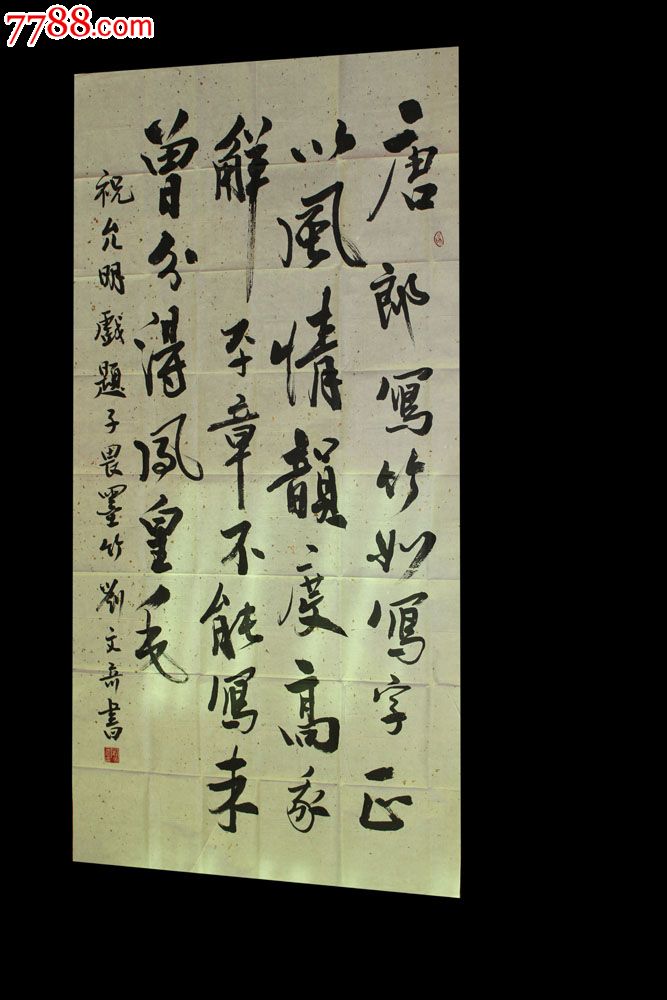 7788.com
唐郎寫竹如寫字正
以風情韻度高我
解平章不能寫未
曾分得鳳皇毛
祝允明戲題子畏墨竹劉文奇書